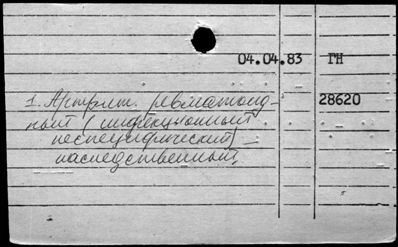 04.04.83 ГН
1. Артрит. ревматоид-
ный (инфекционный 28620
неспецифический) —
наследственный,